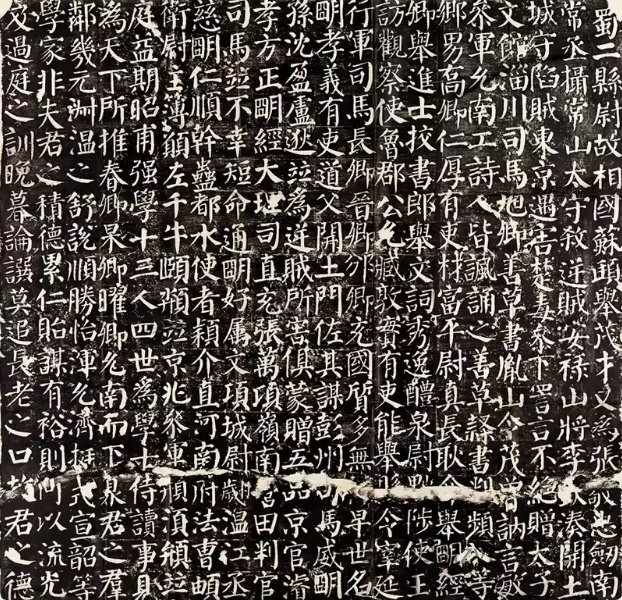 蜀二縣尉故相國蘇頲舉茂才又為張敬忠劒南
常丞攝常山太守殺逆賊安祿山將李欽湊開土
城守陷賊東京遇害楚毒參下詈言不絕贈太子
文館淄川司馬旭卿善草書胤山令茂曾訥言敏
參軍允南工詩人皆諷誦之善草隸書判頻入等
鄉男喬卿仁厚有吏材富平尉真長耿介舉明經
卿舉進士挍書郎舉文詞秀逸醴泉尉黜陟使王
訪觀察使魯郡公允臧敦實有吏能舉縣令宰延
行軍司馬長卿晉卿邠卿充國質多無早世名
明孝義有吏道父開土門佐其謀彭州司馬威明
孫沈盈盧逖並為逆賊所害俱蒙贈五品京官濬
孝方正明經大理司直充張萬頃嶺南營田判官
司馬並不幸短命通明好屬文項城尉翽溫江丞
慈明仁順幹蠱都水使者穎介直河南府法曹頔
衛尉主簿願左千牛頤並京兆參軍須並
庭益期昭甫強學十三人四世為學士侍讀事見
為天下所推春卿杲卿曜卿允南而下息君之群
鄰幾元淑溫之舒說順勝怡渾允濟挺式宣韶等
學家非夫君之積德累仁貽謀有裕則何以流光
及過庭之訓晚暮論譔莫追長老之口故君之德